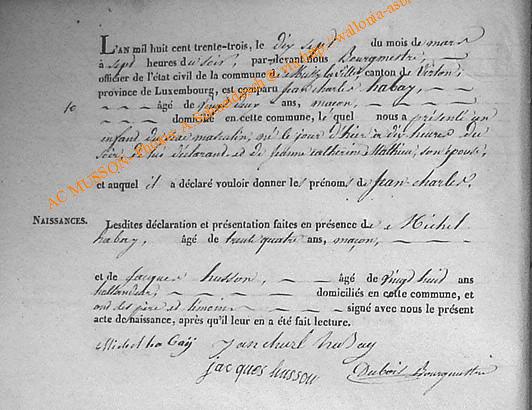 L'AN mil huit cent trente-trois, le dix sept du mois de mars
à sept heures du soir, par-devant nous Bourgmestre,
officier de l'état civil de la commune de canton de Virton,
province de Luxembourg, est comparu jean charles habay,
10 âgé de ans, maçon,
domicilié en cette commune, le quel nous a présenté un
enfant du sexe masculin, né le jour d'hier à dix heures du
soir, de lui déclarant et de jeanne catherine Mathieu, son épouse,
et auquel il a déclaré vouloir donner les prénoms de Jean charles.
NAISSANCES.
Lesdites déclaration et présentation faites en présence de Michel
habay, âgé de trente quatre ans, maçon,
et de jacques husson, âgé de vingt huit ans
domiciliés en cette commune, et
ont les père et témoins signé avec nous le présent
acte de naissance, après qu'il leur en a été fait lecture.
Michel ha Bay jean charl haBay
jacques husson Dubois Bourgmestre
AC MUSSON- Photo: A. http:// wallonia-asbl